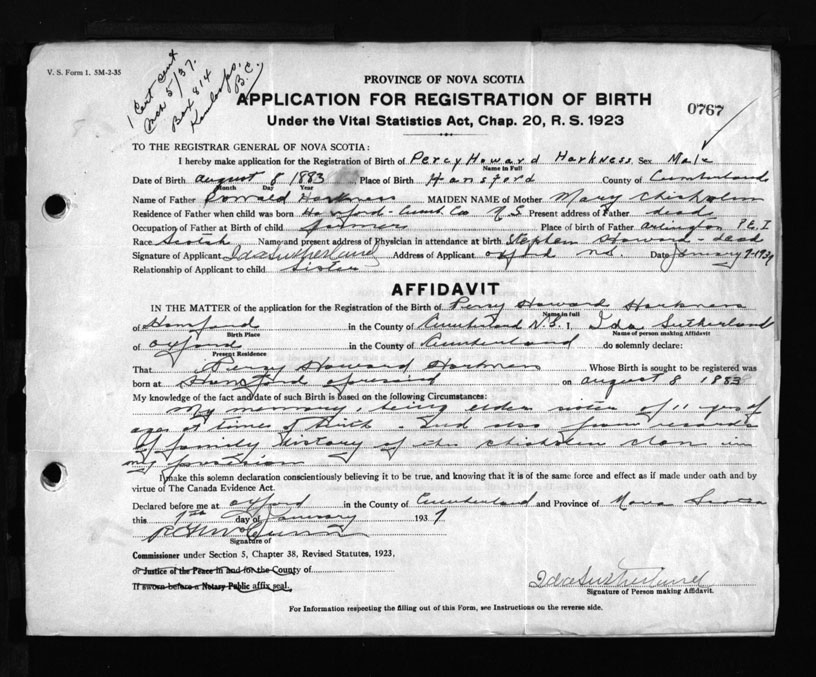 V. S. Form 1. 5M-2-35
1 Cert sent
Mar 5/37.
Box 814
Kamloops,
B.C.
PROVINCE OF NOVA SCOTIA
APPLICATION FOR REGISTRATION OF BIRTH
Under the Vital Statistics Act, Chap. 20, R. S. 1923
0767
TO THE REGISTRAR GENERAL OF NOVA SCOTIA:
I hereby make application for the Registration of Birth of Percy Howard Harkness Sex Male
Name in Full
Date of Birth August 8 1883 Place of Birth Hansford County of Cumberland
Month Day Year
Name of Father Donald Harkness MAIDEN NAME of Mother Mary Chisholm
Residence of Father when child was born Hansford - Cumb Co N S Present address of Father dead
Occupation of Father at Birth of child farmer Place of birth of Father Arlington P. E. I
Race Scotch Name and present address of Physician in attendance at birth Stephen Howard - dead
Signature of Applicant Ida Sutherland Address of Applicant Oxford N.S. Date January 1937
Relationship of Applicant to child Sister
AFFIDAVIT
IN THE MATTER of the application for the Registration of the Birth of Percy Howard Harkness
Name in full
of Hansford in the County of Cumberland N. S. I, Ida Sutherland
Birth Place Name of person making Affidavit
of Oxford in the County of Cumberland do solemnly declare:
Present Residence
That Percy Howard Harkness Whose Birth is sought to be registered was
born at Hansford aforesaid on August 8 1883
My knowledge of the fact and date of such Birth is based on the following Circumstances:
My memory, being elder sister of 11 yrs of
age at time of birth. And also from records
of family history of the in
my possession
I make this solemn declaration conscientiously believing it to be true, and knowing that it is of the same force and effect as if made under oath and by
virtue of The Canada Evidence Act.
Declared before me at Oxford in the County of Cumberland and Province of Nova Scotia
this day of January 1937
Signature of
Commissioner under Section 5, Chapter 38, Revised Statutes, 1923,
or Justice of the Peace in and for the County of
If sworn before a Notary Public affix seal.
Ida Sutherland
Signature of Person making Affidavit.
For Information respecting the filling out of this Form, see Instructions on the reverse side.